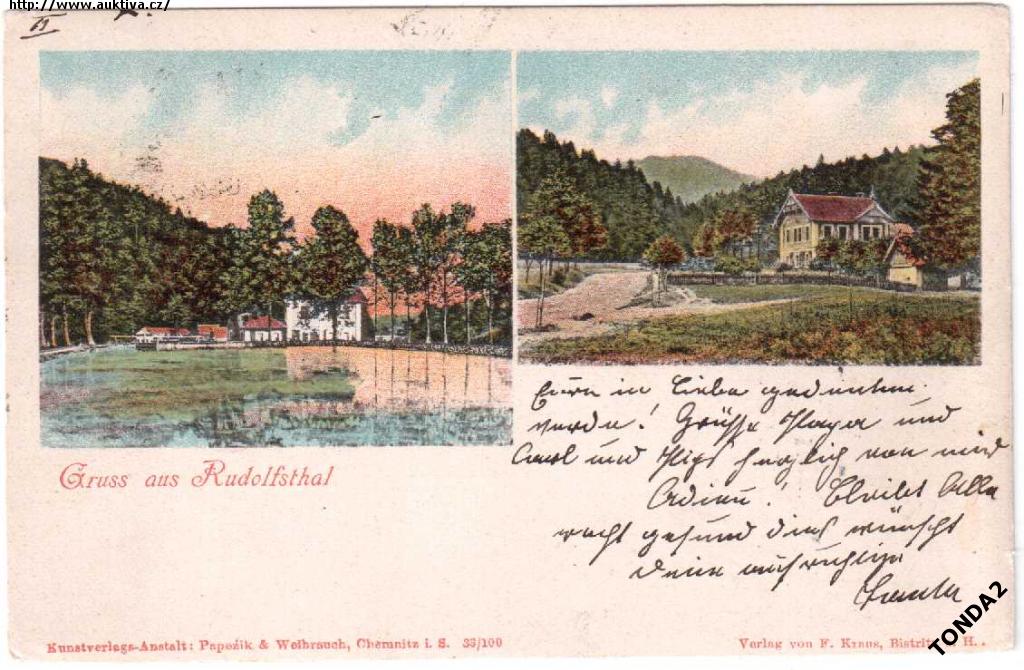 http://www.auktiva.cz/
II
Gruss aus Rudolfsthal
in Liebe gedenken
werde! Grüsse und
und herzlich von mir
Adieu! Bleibet Alle
recht gesund dies wünscht
Deine aufrichtige
Kunstverlags-Anstalt: Papežik & Weibrauch, Chemnitz i. S. 33/100
Verlag von F. Kraus, Bistritz H.
TONDA2